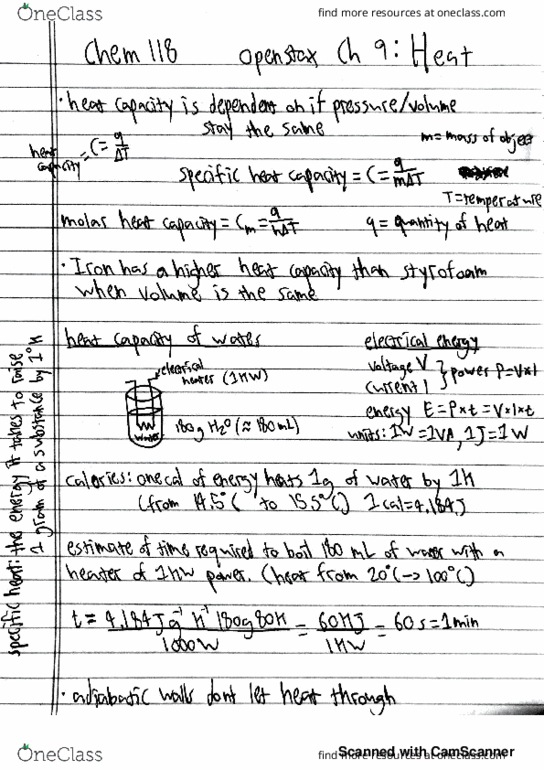 OneClass
find more resources at oneclass.com
Chem 118 openstax Ch 9: Heat
· heat capacity is dependent on if pressure/volume
stay the same
m=mass of object
heat capacity = C = q/ΔT
specific heat capacity = C = q/mΔT
T=temperature
molar heat capacity = Cm = q/nΔT
q = quantity of heat
· Iron has a higher heat capacity than styrofoam
when volume is the same
heat capacity of water
electrical energy
electrical heater (1KW)
voltage V
current I } power P=V×I
180g H2O (≈180mL)
water
energy E=P×t=V×I×t
units: 1W=1VA, 1J=1W
calories: one cal of energy heats 1g of water by 1K
(from 14.5°C to 15.5°C) 1cal=4.184J
specific heat: the energy it takes to raise
1 gram of a substance by 1°K
estimate of time required to boil 180 mL of water with a
heater of 1KW power. (heat from 20°C->100°C)
t = 4.184Jg⁻¹K⁻¹180g80K/1000W = 60KJ/1KW = 60s=1min
· adiabatic walls dont let heat through
OneClass
find more resources at oneclass.com
Scanned with CamScanner